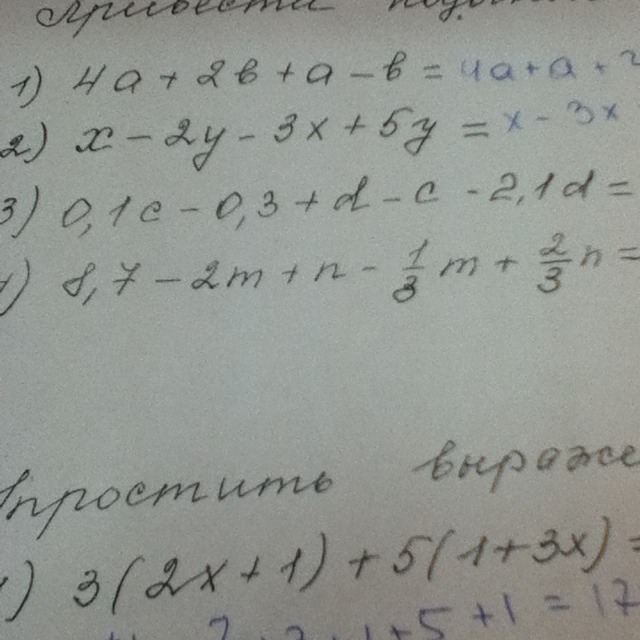 Привести
1) 4a + 2в + a - в = 4a + a +
2) x - 2y - 3x + 5y = x - 3x
3) 0,1c - 0,3 + d - c - 2,1d =
) 8,7 - 2m + n - 1/3 m + 2/3 n =
простить выраже
) 3(2x + 1) + 5(1 + 3x) =
+ 5 + 1 = 17